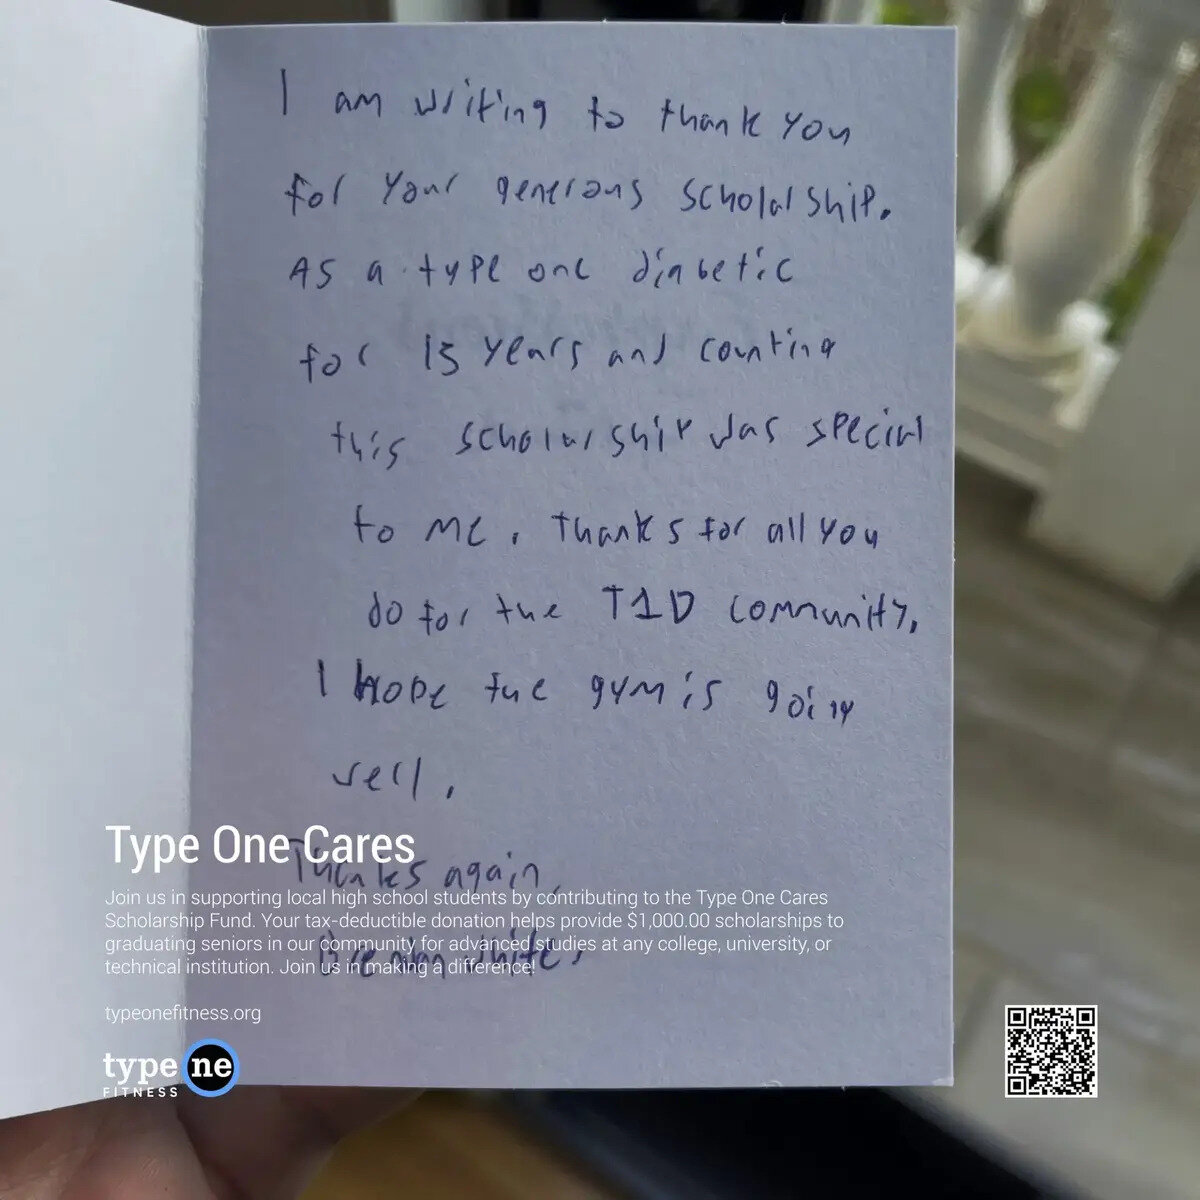 I am writing to thank you
for your generous scholarship.
As a type one diabetic
for 13 years and counting
this scholarship was special
to me. Thanks for all you
do for the T1D community.
I hope the gym is going
well.
Thanks again,
white.
Type One Cares
Join us in supporting local high school students by contributing to the Type One Cares
Scholarship Fund. Your tax-deductible donation helps provide $1,000.00 scholarships to
graduating seniors in our community for advanced studies at any college, university, or
technical institution. Join us in making a difference!
typeonefitness.org
type ne
FITNESS